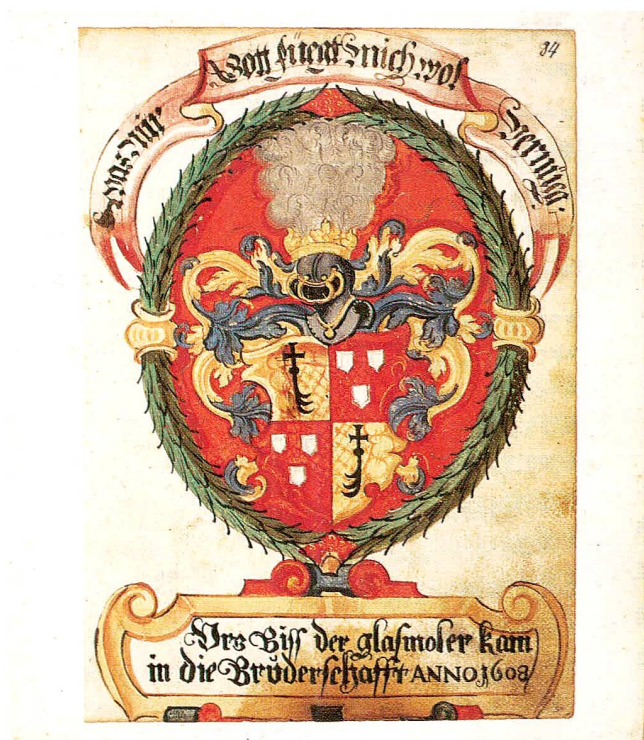 Was Mir
Gott füegt Mich wol
Vernüeg.
Urs Biss der glasmoler kam
in die Brůderschafft ANNO 1608